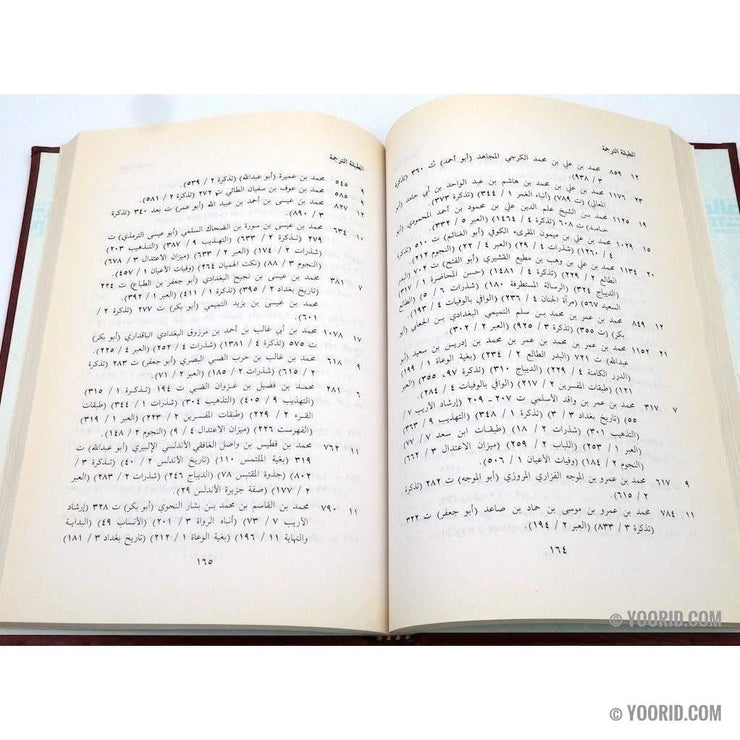 الطبقة الترجمة
١٢ ٨٥٩ محمد بن علي بن محمد الكرجي المجاهد (أبو أحمد) ت ٣٦٠ (تذكرة
٣ / ٩٣٨).
١٨ ١١٦٤ محمد بن علي بن محمد بن هاشم بن عبد الواحد بن أبي حامد (أبو
المعالي) (ت ٧٨٩) (أنباء الغمر ١ / ٣٤٤) (تذكرة ٣٧٣)
١٩ ١١٢٥ محمد بن الشيخ علم الدين علي بن محمود بن أحمد المحمودي (أبو
حامد) ت ٦٠٨ (تذكرة ٤ / ١٤٦٤) (العبر ٥ / ٣٣٢).
١٥ ١٠٢٩ محمد بن علي بن ميمون المقرىء الكوفي (أبو الغنائم) ت ٥١٠ (تذكرة
(شذرات ٤ / ٢٩) (العبر ٤ / ٢٢) (النجوم ٢١٢).
٢٠ ١١٣٤ محمد بن علي بن وهب بن مطيع القشيري (أبو الفتح) ت ٧٠٢ (البدر
الطالع ٢ / ٢٢٩) (تذكرة ٤ / ١٤٨١) (حسن المحاضرة ١ / ٣١٧)
(الديباج ٣٢٤) (الرسالة المستطرفة ١٨٠) (شذرات ٦ / ٥) (الطالع
السعيد ٥٦٧) (مرآة الجنان ٤ / ٢٣٦) (الوافي بالوفيات ٤ /
١٢ ٨٤٩ محمد بن عمر بن محمد بن سلم التميمي البغدادي بن الجعابي (أبو
بكر) ت ٣٥٥ (تذكرة ٣ / ٩٢٥) (العبر ٢ / ٣٠٢).
٢١ ١١٥٢ محمد بن عمر بن محمد بن عمر بن محمد بن إدريس بن سعيد (أبو
عبدالله) ت ٧٢١ (البدر الطالع ٢ / ٢٣٤) (بغية الوعاة ١ / ١٩٩)
(الدرر الكامنة ٤ / ٢٢٩) (الديباج ٣١١) (تذكرة ٩٧، ٣٥٥) (العبر
١٢١) (طبقات المفسرين ٢ / ٢١٧) (الوافي بالوفيات ٤ / ٢٨٤).
٧ ٣١٧ محمد بن عمر بن واقد الأسلمي ت ٢٠٧ ــ ٢٠٩ (إرشاد الأريب ٧ /
٥٥) (تاريخ بغداد ٣ / ٣) (تذكرة ١ / ٣٤٨) (التهذيب ٩ / ٣٦٣)
التذهيب ٣٠١) (شذرات ٢ / ١٨) (طبقات ابن سعد ٧ / ٧٧)
العبر ١ / ٢٥٣) (اللباب ٢ / ٢٥٩) (ميزان الاعتدال ٣ / ٦٦٢)
النجوم ٢ / ١٨٤) (وفيات الأعيان ١ / ٥٠٦).
٩ ٦١٧ محمد بن عمرو بن الموجه الفزاري المروزي (أبو الموجه) ت ٢٨٢ (تذكرة
٢ / ٦١٥).
١١ ٧٨٤ محمد بن عمرو بن موسى بن حماد بن صاعد (أبو جعفر) ت ٣٢٢
(تذكرة ٣ / ٨٣٣) (العبر ٢ / ١٩٤).
١٦٤
الطبقة الترجمة
٩ ٥٤٥ محمد بن عميرة (أبو عبدالله) (تذكرة ٢ / ٥٣٩).
٩ ٥٨٥ محمد بن عوف بن سفيان الطائي ت (تذكرة ٢ / ٥٨١).
١٢ ٨٢٧ محمد بن عيسى بن أحمد بن عبد الله (أبو عمر) ت بعد ٣٤٠ (تذكرة
٣ / ٨٩٠).
١٠ ٦٣٤ محمد بن عيسى بن سورة بن الضحاك السلمي (أبو عيسى الترمذي) ت
٢٧٩ (تذكرة ٢ / ٦٣٣) (التهذيب ٩ / ٣٨٧) (التذهيب ٢٠٣)
(شذرات ٢ / ١٧٤) (العبر ٢ / ٦٢) (ميزان الاعتدال ٣ / ٦٧٨)
(النجوم ٣ / ٨٨) (نكت الهميان ٢٦٤) (وفيات الأعيان ١ / ٤٥٧).
٧ ٣٨١ محمد بن عيسى بن نجيح البغدادي (أبو جعفر بن الطباع) ت ٢٢٤
(تاريخ بغداد ٢ / ٣٩٥) (تذكرة ١ / ٤١١) (العبر ١ / ٣٩٢).
محمد بن عيسى بن يزيد التميمي (أبو بكر) ت ٢٧٧ (تذكرة ٢ /
٦٠١).
١٧ ١٠٧٨ محمد بن أبي غالب بن أحمد بن مرزوق البغدادي الباقداري (أبو بكر)
ت ٥٧٥ (تذكرة ٤ / ١٣٨١) (شذرات ٤ / ٢٥٢) (العبر ٤ / ٢٢٥).
٩ ٦١٨ محمد بن غالب بن حرب الضبي البصري (أبو جعفر) ت ٢٨٣ (تذكرة
٢ / ٦١٥) (شذرات ٢ / ١٨٥) (العبر ٢ / ٧١).
٦ ٢٨١ محمد بن فضيل بن غزوان الضبي ت ١٩٤ (تذكرة ١ / ٣١٥)
(التهذيب ٩ / ٤٠٥) (التذهيب ٣٠٤) (شذرات ١ / ٣٤٤) (طبقات
القراء ٢ / ٢٢٩) (طبقات المفسرين ٢ / ٢٢٣) (العبر ١ / ٣١٩)
(الفهرست ٢٢٦) (ميزان الاعتدال ٤ / ٩) (النجوم ٢ / ١٤٨).
١١ ٧٦٢ محمد بن فطيس بن واصل الغافقي الأندلسي الإلبيري (أبو عبدالله) ت
٣١٩ (بغية الملتمس ١١٠) (تاريخ الأندلس ٢ / ٤٠) (تذكرة ٣ /
٨٠٢) (جذوة المقتبس ٧٨) (الديباج ٢٤٦) (شذرات ٢ / ٢٨٣) (العبر
٢ / ١٧٧) (صفة جزيرة الأندلس ٢٩).
١١ ٧٩٠ محمد بن القاسم بن محمد بن بشار النحوي (أبو بكر) ت ٣٢٨ (إرشاد
الأريب ٧ / ٧٣) (أنباه الرواة ٣ / ٢٠١) (الأنساب ٤٩) (البداية
والنهاية ١١ / ١٩٦) (بغية الوعاة ١ / ٢١٢) (تاريخ بغداد ٣ / ١٨١)
١٦٥
© YOORID.COM
© YOORID.COM